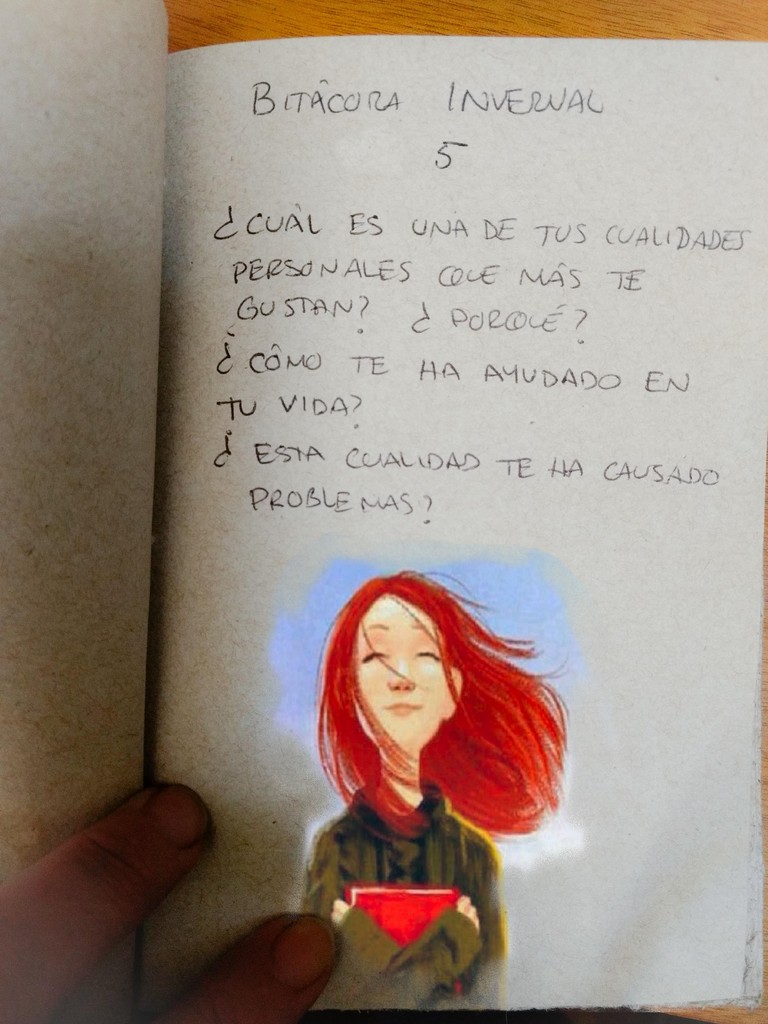 BITÁCORA INVERNAL
5
¿CUÁL ES UNA DE TUS CUALIDADES
PERSONALES QUE MÁS TE
GUSTAN? ¿PORQUÉ?
¿CÓMO TE HA AYUDADO EN
TU VIDA?
¿ESTA CUALIDAD TE HA CAUSADO
PROBLEMAS?